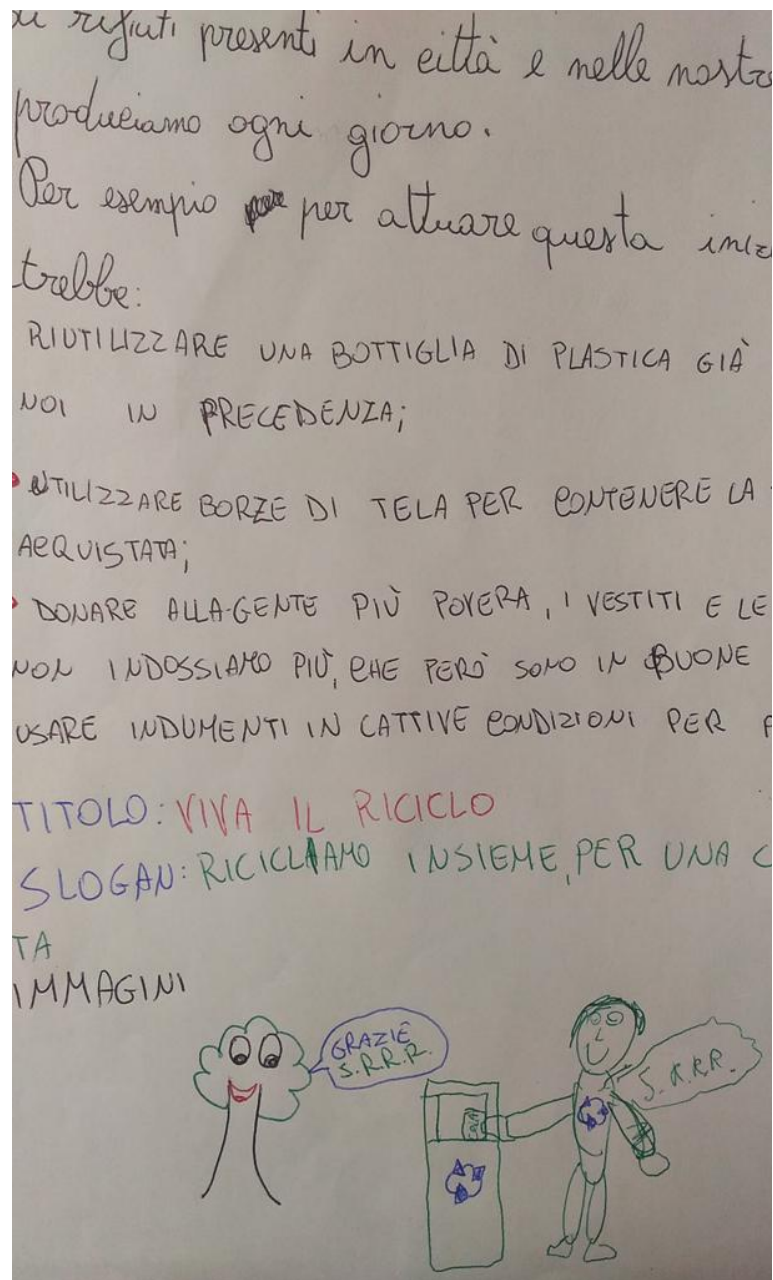 di rifiuti presenti in città e nelle nostre
produciamo ogni giorno.
Per esempio per attuare questa iniz
trebbe:
RIUTILIZZARE UNA BOTTIGLIA DI PLASTICA GIÀ
NOI IN PRECEDENZA;
UTILIZZARE BORZE DI TELA PER CONTENERE LA
ACQUISTATA;
DONARE ALLA GENTE PIÙ POVERA, I VESTITI E LE
NON INDOSSIAMO PIÙ, CHE PERÒ SONO IN BUONE
USARE INDUMENTI IN CATTIVE CONDIZIONI PER
TITOLO: VIVA IL RICICLO
SLOGAN: RICICLIAMO INSIEME, PER UNA C
TA
IMMAGINI
GRAZIE
S.R.R.R.
S.R.R.R.